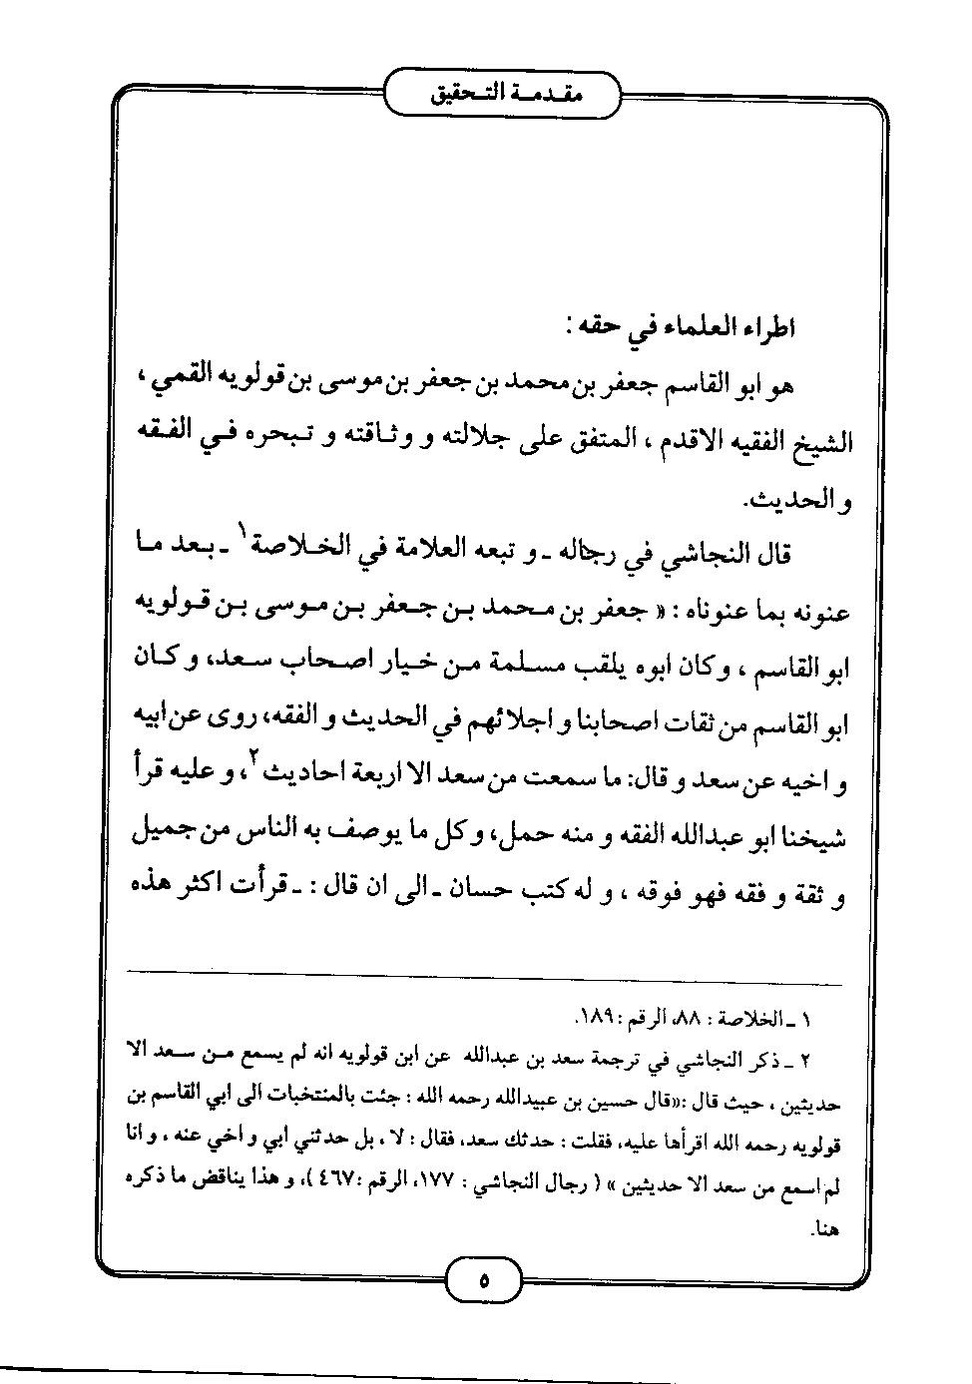 مقدمة التحقيق
اطراء العلماء في حقه :
هو ابو القاسم جعفر بن محمد بن جعفر بن موسى بن قولويه القمي ،
الشيخ الفقيه الاقدم ، المتفق على جلالته و وثاقته و تبحره في الفقه
و الحديث.
قال النجاشي في رجاله ـ و تبعه العلامة في الخلاصة ١ ـ بعد ما
عنونه بما عنوناه : « جعفر بن محمد بن جعفر بن موسى بن قولويه
ابو القاسم ، و كان ابوه يلقب مسلمة من خيار اصحاب سعد، و كان
ابو القاسم من ثقات اصحابنا و اجلائهم في الحديث و الفقه، روى عن ابيه
و اخيه عن سعد و قال: ما سمعت من سعد الا اربعة احاديث ٢، و عليه قرأ
شيخنا ابو عبدالله الفقه و منه حمل، و كل ما يوصف به الناس من جميل
و ثقة و فقه فهو فوقه ، و له كتب حسان ـ الى ان قال : ـ قرأت اكثر هذه
١ ـ الخلاصة : ٨٨، الرقم : ١٨٩.
٢ ـ ذكر النجاشي في ترجمة سعد بن عبدالله عن ابن قولويه انه لم يسمع من سعد الا
حديثين ، حيث قال :«قال حسين بن عبيدالله رحمه الله : جئت بالمنتخبات الى ابي القاسم بن
قولويه رحمه الله اقرأها عليه، فقلت : حدثك سعد، فقال : لا ، بل حدثني ابي و اخي عنه ، و انا
لم اسمع من سعد الا حديثين » ( رجال النجاشي : ١٧٧، الرقم :٤٦٧ )، و هذا يناقض ما ذكره
هنا.
٥